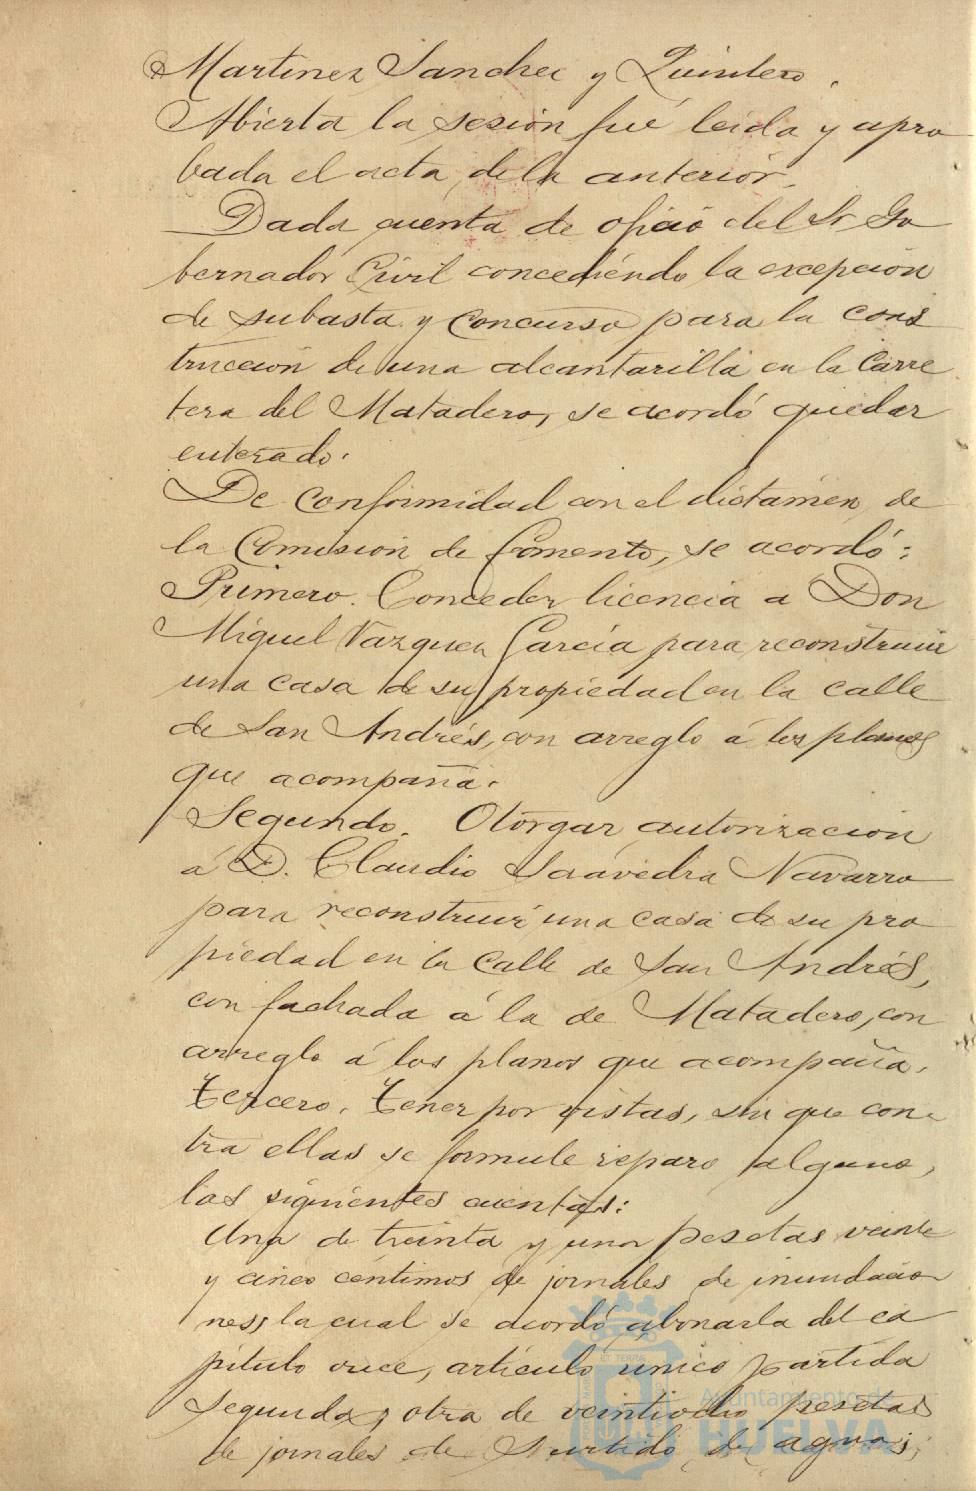 Martinez Sanchez y Quintero.
Abierta la sesión fué leida y apro
bada el acta de la anterior.
Dada cuenta de oficio del Sr Go
bernador Civil concediéndo la excepcion
de subasta y concurso para la cons
truccion de una alcantarilla en la Carre
tera del Matadero, se acordó quedar
enterado.
De conformidad con el dictámen de
la Comision de Fomento, se acordó:
Primero. Conceder licencia a Don
Miguel Vazquez García para reconstruir
una casa de su propiedad en la calle
de San Andrés, con arreglo á los planos
que acompaña.
Segundo. Otorgar autorizacion
á D. Claudio Saavedra Navarro
para reconstruir una casa de su pro
piedad en la calle de San Andrés,
con fachada á la de Matadero, con
arreglo á los planos que acompaña.
Tercero. Tener por vistas, sin que con
tra ellas se formule reparo alguno,
las siguientes cuentas:
Una de treinta y una pesetas veinte
y cinco centimos de jornales de inundacio
ness la cual se acordó abonarla del ca
pitulo once, articulo unico partida
segunda, otra de veintiocho pesetas
de jornales de Surtido de aguas;
Ayuntamiento de
HUELVA